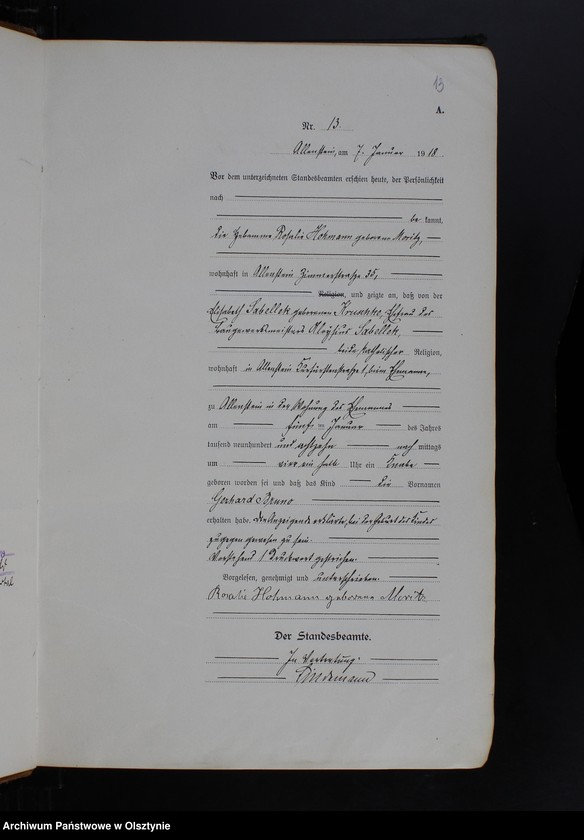 13
A.
Nr. 13.
Allenstein, am 7. Januar 1918
Vor dem unterzeichneten Standesbeamten erschien heute, der Persönlichkeit
nach
be kannt,
die Hebamme Rosalie Hohmann geborene Moritz,
wohnhaft in Allenstein Zimmerstraße 35,
Religion, und zeigte an, daß von der
Elisabeth Sabellek geborenen Kruschke, Ehefrau des
Baugewerksmeisters Aloysius Sabellek,
beide katholischer Religion,
wohnhaft in Allenstein Kurfürstenstraße 1, beim Ehemann,
zu Allenstein in der Wohnung des Ehemannes
am fünf ten Januar des Jahres
tausend neunhundert und achtzehn nach mittags
um vier ein halb Uhr ein Knabe
geboren worden sei und daß das Kind die Vornamen
Gerhard Bruno
erhalten habe. Die Anzeigende erklärte, bei der Geburt des Kindes
zugegen gewesen zu sein.
Vorstehend 1 Druckwort gestrichen.
Vorgelesen, genehmigt und unterschrieben.
Rosalie Hohmann geborene Moritz
Der Standesbeamte.
In Vertretung.
Lindemann
Archiwum Państwowe w Olsztynie